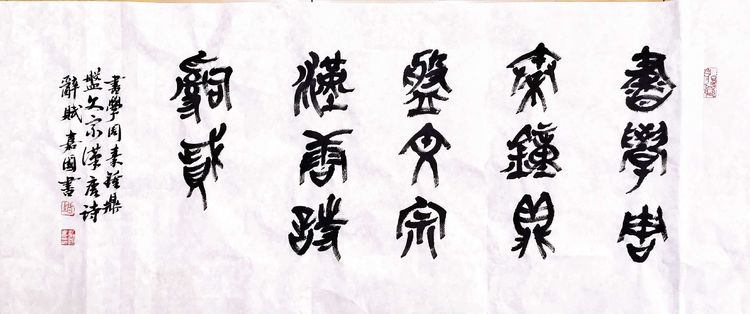 書學周
秦鐘鼎
盤文宗
漢唐詩
辭賦
書學周秦鐘鼎
盤文宗漢唐詩
辭賦 嘉國書